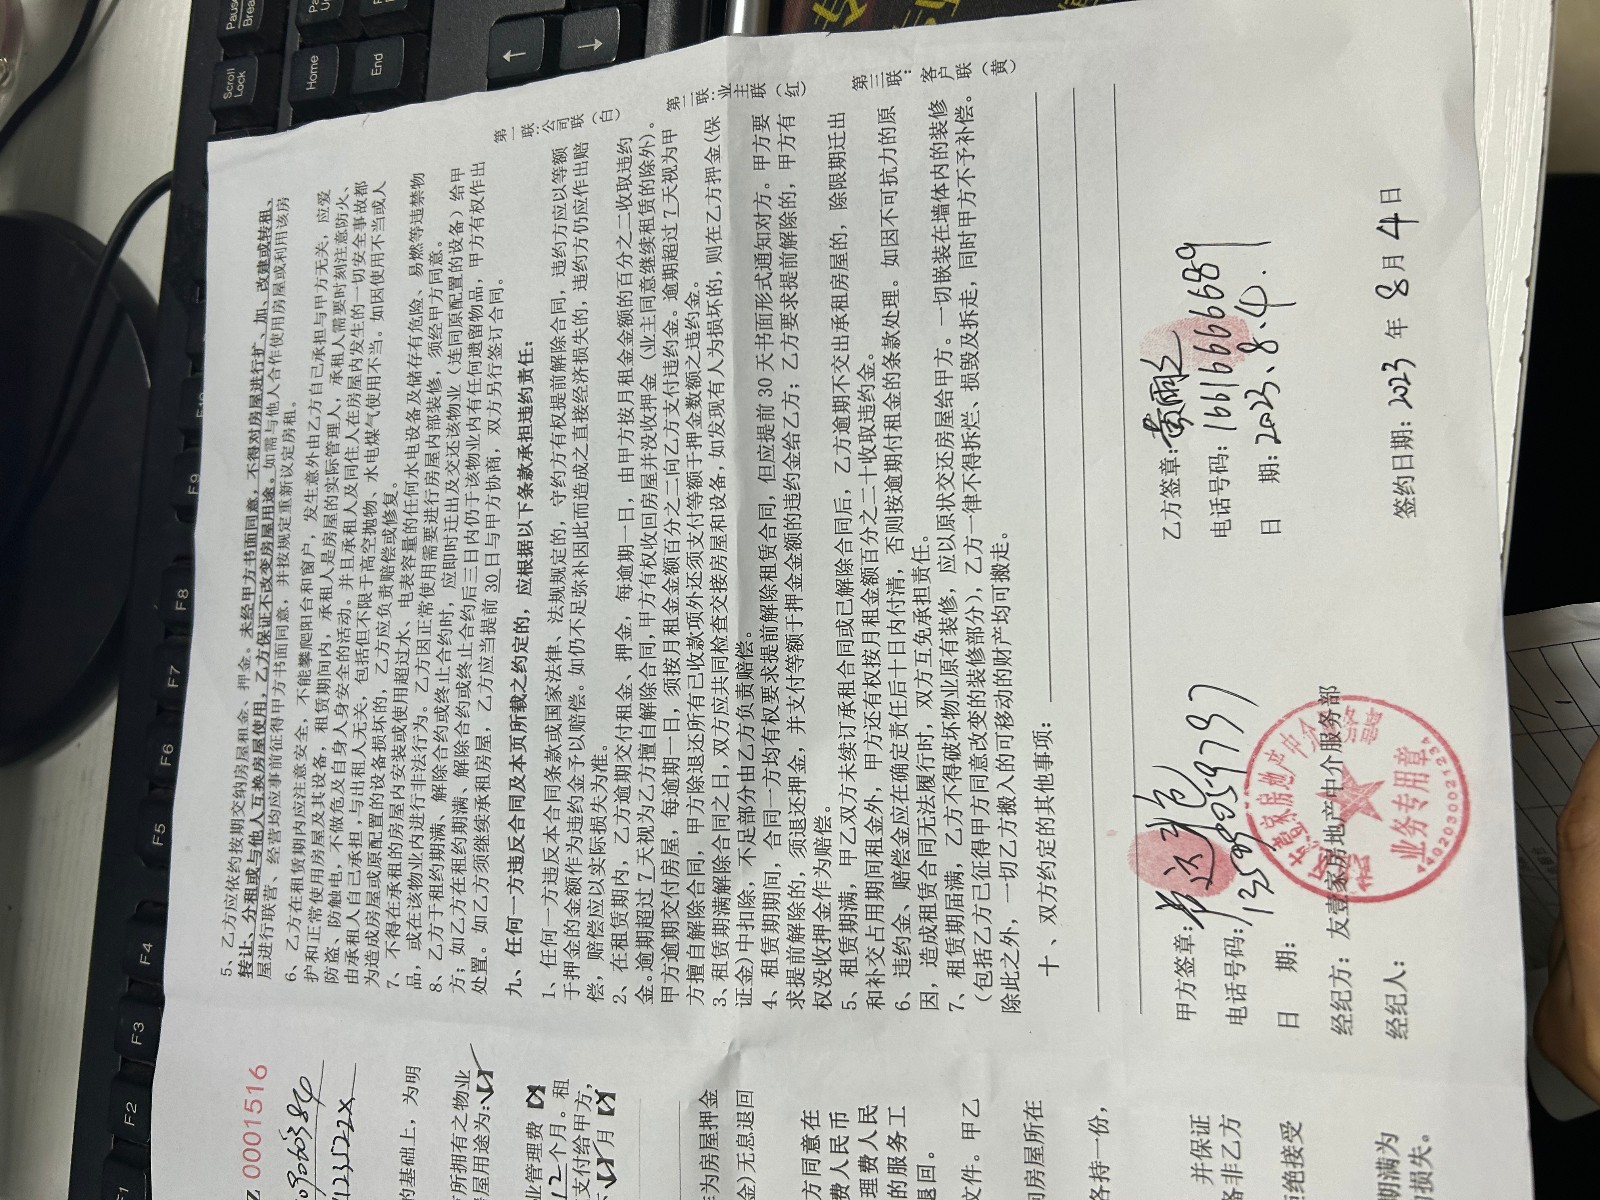 5、乙方应依约按期交纳房屋租金、押金。未经甲方书面同意，不得对房屋进行扩、加、改建或转租、
转让、分租或与他人互换房屋使用，乙方保证不改变房屋用途。如需与他人合作使用房屋或利用该房
屋进行联营、经营均应事前征得甲方书面同意，并按规定重新议定房租。
6、乙方在租赁期内应注意安全，不能攀爬阳台和窗户，发生意外由乙方自己承担与甲方无关，应爱
护和正常使用房屋及其设备，租赁期间内，承租人是房屋的实际管理人，承租人需要时刻注意防火、
防盗、防触电，不做危及自身人身安全的活动。并且承租人及同住人在房屋内发生的一切安全事故都
由承租人自己承担，与出租人无关，包括但不限于高空抛物、水电煤气使用不当。如因使用不当或人
为造成房屋或原配置的设备损坏的，乙方应负责赔偿或修复。
7、不得在承租的房屋内安装或使用超过水、电表容量的任何水电设备及储存有危险、易燃等违禁物
品，或在该物业内进行非法行为。乙方因正常使用需要进行房屋内部装修，须经甲方同意。
8、乙方于租约期满、解除合约或终止合约时，应即时迁出及交还该物业（连同原配置的设备）给甲
方；如乙方在租约期满、解除合约或终止合约后三日内仍于该物业内有任何遗留物品，甲方有权作出
处置。如乙方须继续承租房屋，乙方应当提前 30 日与甲方协商，双方另行签订合同。
九、任何一方违反合同及本页所载之约定的，应根据以下条款承担违约责任：
1、任何一方违反本合同条款或国家法律、法规规定的，守约方有权提前解除合同，违约方应以等额
于押金的金额作为违约金予以赔偿。如仍不足弥补因此而造成之直接经济损失的，违约方仍应作出赔
偿，赔偿应以实际损失为准。
2、在租赁期内，乙方逾期交付租金、押金，每逾期一日，由甲方按月租金金额的百分之二收取违约
金。逾期超过 7 天视为乙方擅自解除合同，甲方有权收回房屋并没收押金（业主同意继续租赁的除外）。
甲方逾期交付房屋，每逾期一日，须按月租金金额百分之二向乙方支付违约金。逾期超过 7 天视为甲
方擅自解除合同，甲方除退还所有已收款项外还须支付等额于押金数额之违约金。
3、租赁期满解除合同之日，双方应共同检查交接房屋和设备，如发现有人为损坏的，则在乙方押金（保
证金)中扣除，不足部分由乙方负责赔偿。
4、租赁期期间，合同一方均有权要求提前解除租赁合同，但应提前 30 天书面形式通知对方。甲方要
求提前解除的，须退还押金，并支付等额于押金金额的违约金给乙方；乙方要求提前解除的，甲方有
权没收押金作为赔偿。
5、租赁期满，甲乙双方未续订承租合同或已解除合同后，乙方逾期不交出承租房屋的，除限期迁出
和补交占用期间租金外，甲方还有权按月租金额百分之二十收取违约金。
6、违约金、赔偿金应在确定责任后十日内付清，否则按逾期付租金的条款处理。如因不可抗力的原
因，造成租赁合同无法履行时，双方互免承担责任。
7、租赁期届满，乙方不得破坏物业原有装修，应以原状交还房屋给甲方。一切嵌装在墙体内的装修
（包括乙方已征得甲方同意改变的装修部分），乙方一律不得拆烂、损毁及拆走，同时甲方不予补偿。
除此之外，一切乙方搬入的可移动的财产均可搬走。
十、双方约定的其他事项：
甲方签章：
电话号码：13589059797
日 期：
经纪方：友壹家房地产中介服务部
经纪人：
业务专用章
4402030021234
乙方签章：黄雨
电话号码：16616666689
日 期：2023.8.4.
签约日期：2023 年 8 月 4 日
第一联：公司联（白）
第二联：业主联（红）
第三联：客户联（黄）
0001516
的基础上，为明
所拥有之物业
屋用途为：
业管理费
12 个月。租
支付给甲方，
月
为房屋押金
金)无息退回
方同意在
费人民币
理费人民
的服务工
退回。
文件。甲乙
房屋所在
各持一份，
并保证
备非乙方
拒绝接受
期满为
损失。
Pause
Break
Scroll
Lock
Home
End
↑
↓
F10
F9
F8
F7
F6
F5
F4
F3
F2
F1